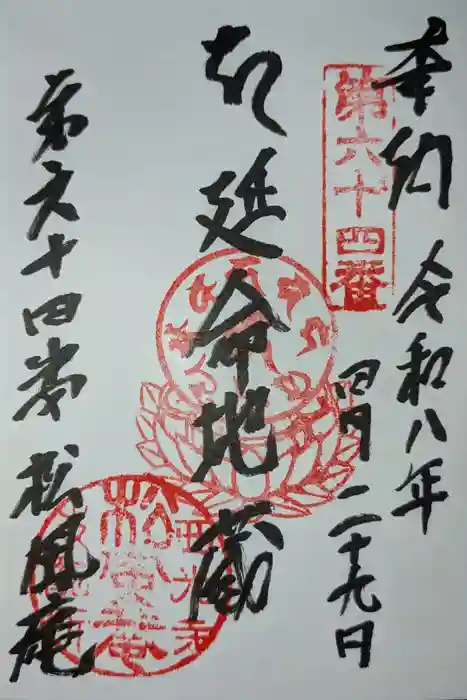 奉納 令和八年
四月二十九日
第六十四番
延命地蔵
第六十四番 松風庵